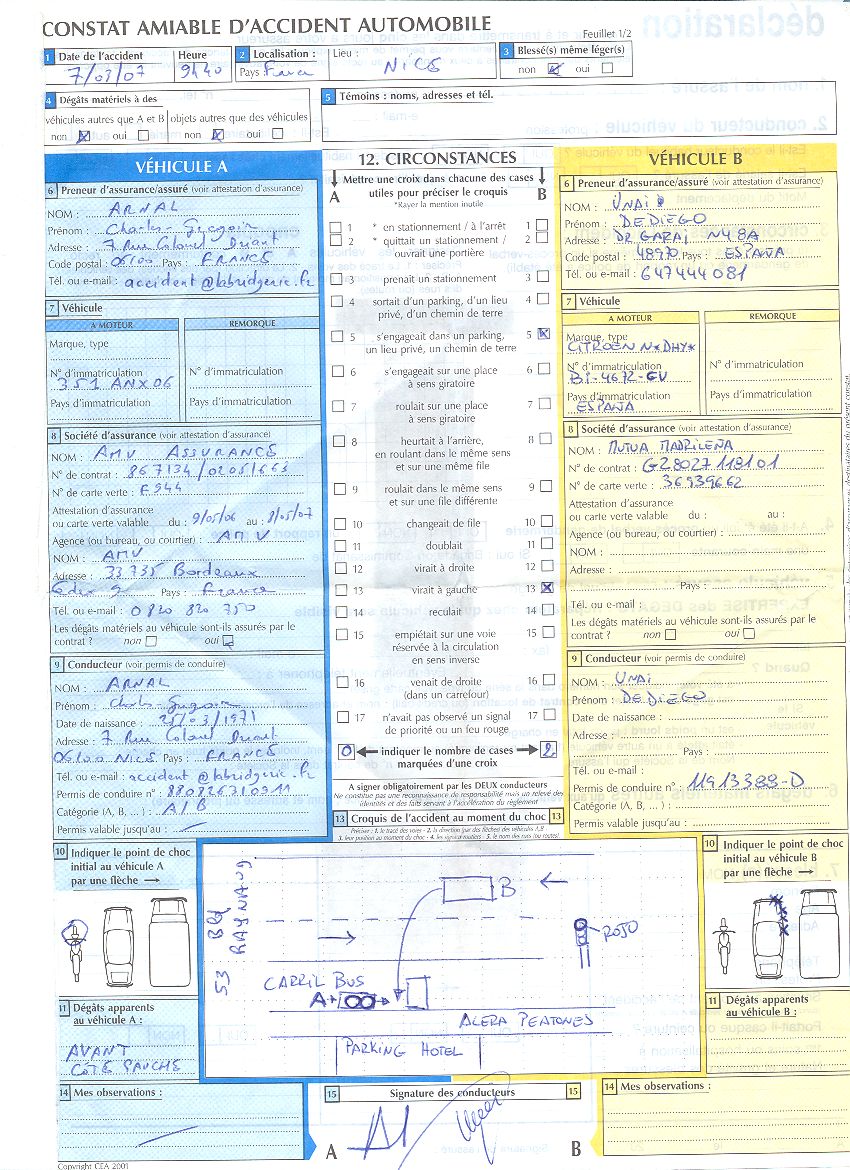 CONSTAT AMIABLE D'ACCIDENT AUTOMOBILE
Feuillet 1/2
1 Date de l'accident Heure
7/03/07 9h40
2 Localisation : Lieu :
Pays : France NICE
3 Blessé(s) même léger(s)
non oui
4 Dégâts matériels à des
véhicules autres que A et B objets autres que des véhicules
non oui non oui
5 Témoins : noms, adresses et tél.
VÉHICULE A
6 Preneur d'assurance/assuré (voir attestation d'assurance)
NOM : ARNAL
Prénom : Charles Gregoire
Adresse : 7 Rue Colonel Driant
Code postal : 06100 Pays : FRANCE
Tél. ou e-mail : accident@labridgerie.fr
7 Véhicule
A MOTEUR REMORQUE
Marque, type
N° d'immatriculation N° d'immatriculation
351 ANX 06
Pays d'immatriculation Pays d'immatriculation
8 Société d'assurance (voir attestation d'assurance)
NOM : AMV ASSURANCE
N° de contrat : 867134/0205/663
N° de carte verte : F944
Attestation d'assurance
ou carte verte valable du : 9/05/06 au : 8/05/07
Agence (ou bureau, ou courtier) : AMV
NOM : AMV
Adresse : 33735 Bordeaux
Cedex 9 Pays : France
Tél. ou e-mail : 0820 820 750
Les dégâts matériels au véhicule sont-ils assurés par le
contrat ? non oui
9 Conducteur (voir permis de conduire)
NOM : ARNAL
Prénom : Charles Gregoire
Date de naissance : /03/1971
Adresse : 7 Rue Colonel Driant
06100 NICE Pays : FRANCE
Tél. ou e-mail : accident@labridgerie.fr
Permis de conduire n° : 880826310911
Catégorie (A, B, ... ) : A/B
Permis valable jusqu'au :
10 Indiquer le point de choc
initial au véhicule A
par une flèche
11 Dégâts apparents
au véhicule A :
AVANT
CÔTÉ GAUCHE
14 Mes observations :
12. CIRCONSTANCES
Mettre une croix dans chacune des cases
A utiles pour préciser le croquis B
*Rayer la mention inutile
1 * en stationnement / à l'arrêt 1
2 * quittait un stationnement / 2
ouvrait une portière
3 prenait un stationnement 3
4 sortait d'un parking, d'un lieu 4
privé, d'un chemin de terre
5 s'engageait dans un parking, 5
un lieu privé, un chemin de terre
6 s'engageait sur une place 6
à sens giratoire
7 roulait sur une place 7
à sens giratoire
8 heurtait à l'arrière, 8
en roulant dans le même sens
et sur une même file
9 roulait dans le même sens 9
et sur une file différente
10 changeait de file 10
11 doublait 11
12 virait à droite 12
13 virait à gauche 13
14 reculait 14
15 empiétait sur une voie 15
réservée à la circulation
en sens inverse
16 venait de droite 16
(dans un carrefour)
17 n'avait pas observé un signal 17
de priorité ou un feu rouge
0 indiquer le nombre de cases 2
marquées d'une croix
A signer obligatoirement par les DEUX conducteurs
Ne constitue pas une reconnaissance de responsabilité mais un relevé des
identités et des faits servant à l'accélération du règlement
13 Croquis de l'accident au moment du choc 13
Préciser : 1. le tracé des voies - 2. la direction (par des flèches) des véhicules A, B
3. leur position au moment du choc - 4. les signaux routiers - 5. le nom des rues (ou routes).
53 Bd RAYNAUD
B
ROJO
CARRIL BUS
A
ACERA PEATONES
PARKING HOTEL
15 Signature des conducteurs 15
A B
VÉHICULE B
6 Preneur d'assurance/assuré (voir attestation d'assurance)
NOM : UNAI
Prénom : DE DIEGO
Adresse : DR GARAI Nº 8A
Code postal : 48970 Pays : ESPAÑA
Tél. ou e-mail : 647444081
7 Véhicule
A MOTEUR REMORQUE
Marque, type
CITROEN N*DHY*
N° d'immatriculation N° d'immatriculation
BI-4672-CV
Pays d'immatriculation Pays d'immatriculation
ESPAÑA
8 Société d'assurance (voir attestation d'assurance)
NOM : MUTUA MADRILEÑA
N° de contrat : G28027118101
N° de carte verte : 36939662
Attestation d'assurance
ou carte verte valable du : au :
Agence (ou bureau, ou courtier) :
NOM :
Adresse :
Pays :
Tél. ou e-mail :
Les dégâts matériels au véhicule sont-ils assurés par le
contrat ? non oui
9 Conducteur (voir permis de conduire)
NOM : UNAI
Prénom : DE DIEGO
Date de naissance :
Adresse :
Pays :
Tél. ou e-mail :
Permis de conduire n° : 11913389-D
Catégorie (A, B, ... ) :
Permis valable jusqu'au :
10 Indiquer le point de choc
initial au véhicule B
par une flèche
11 Dégâts apparents
au véhicule B :
14 Mes observations :
Copyright CEA 2001